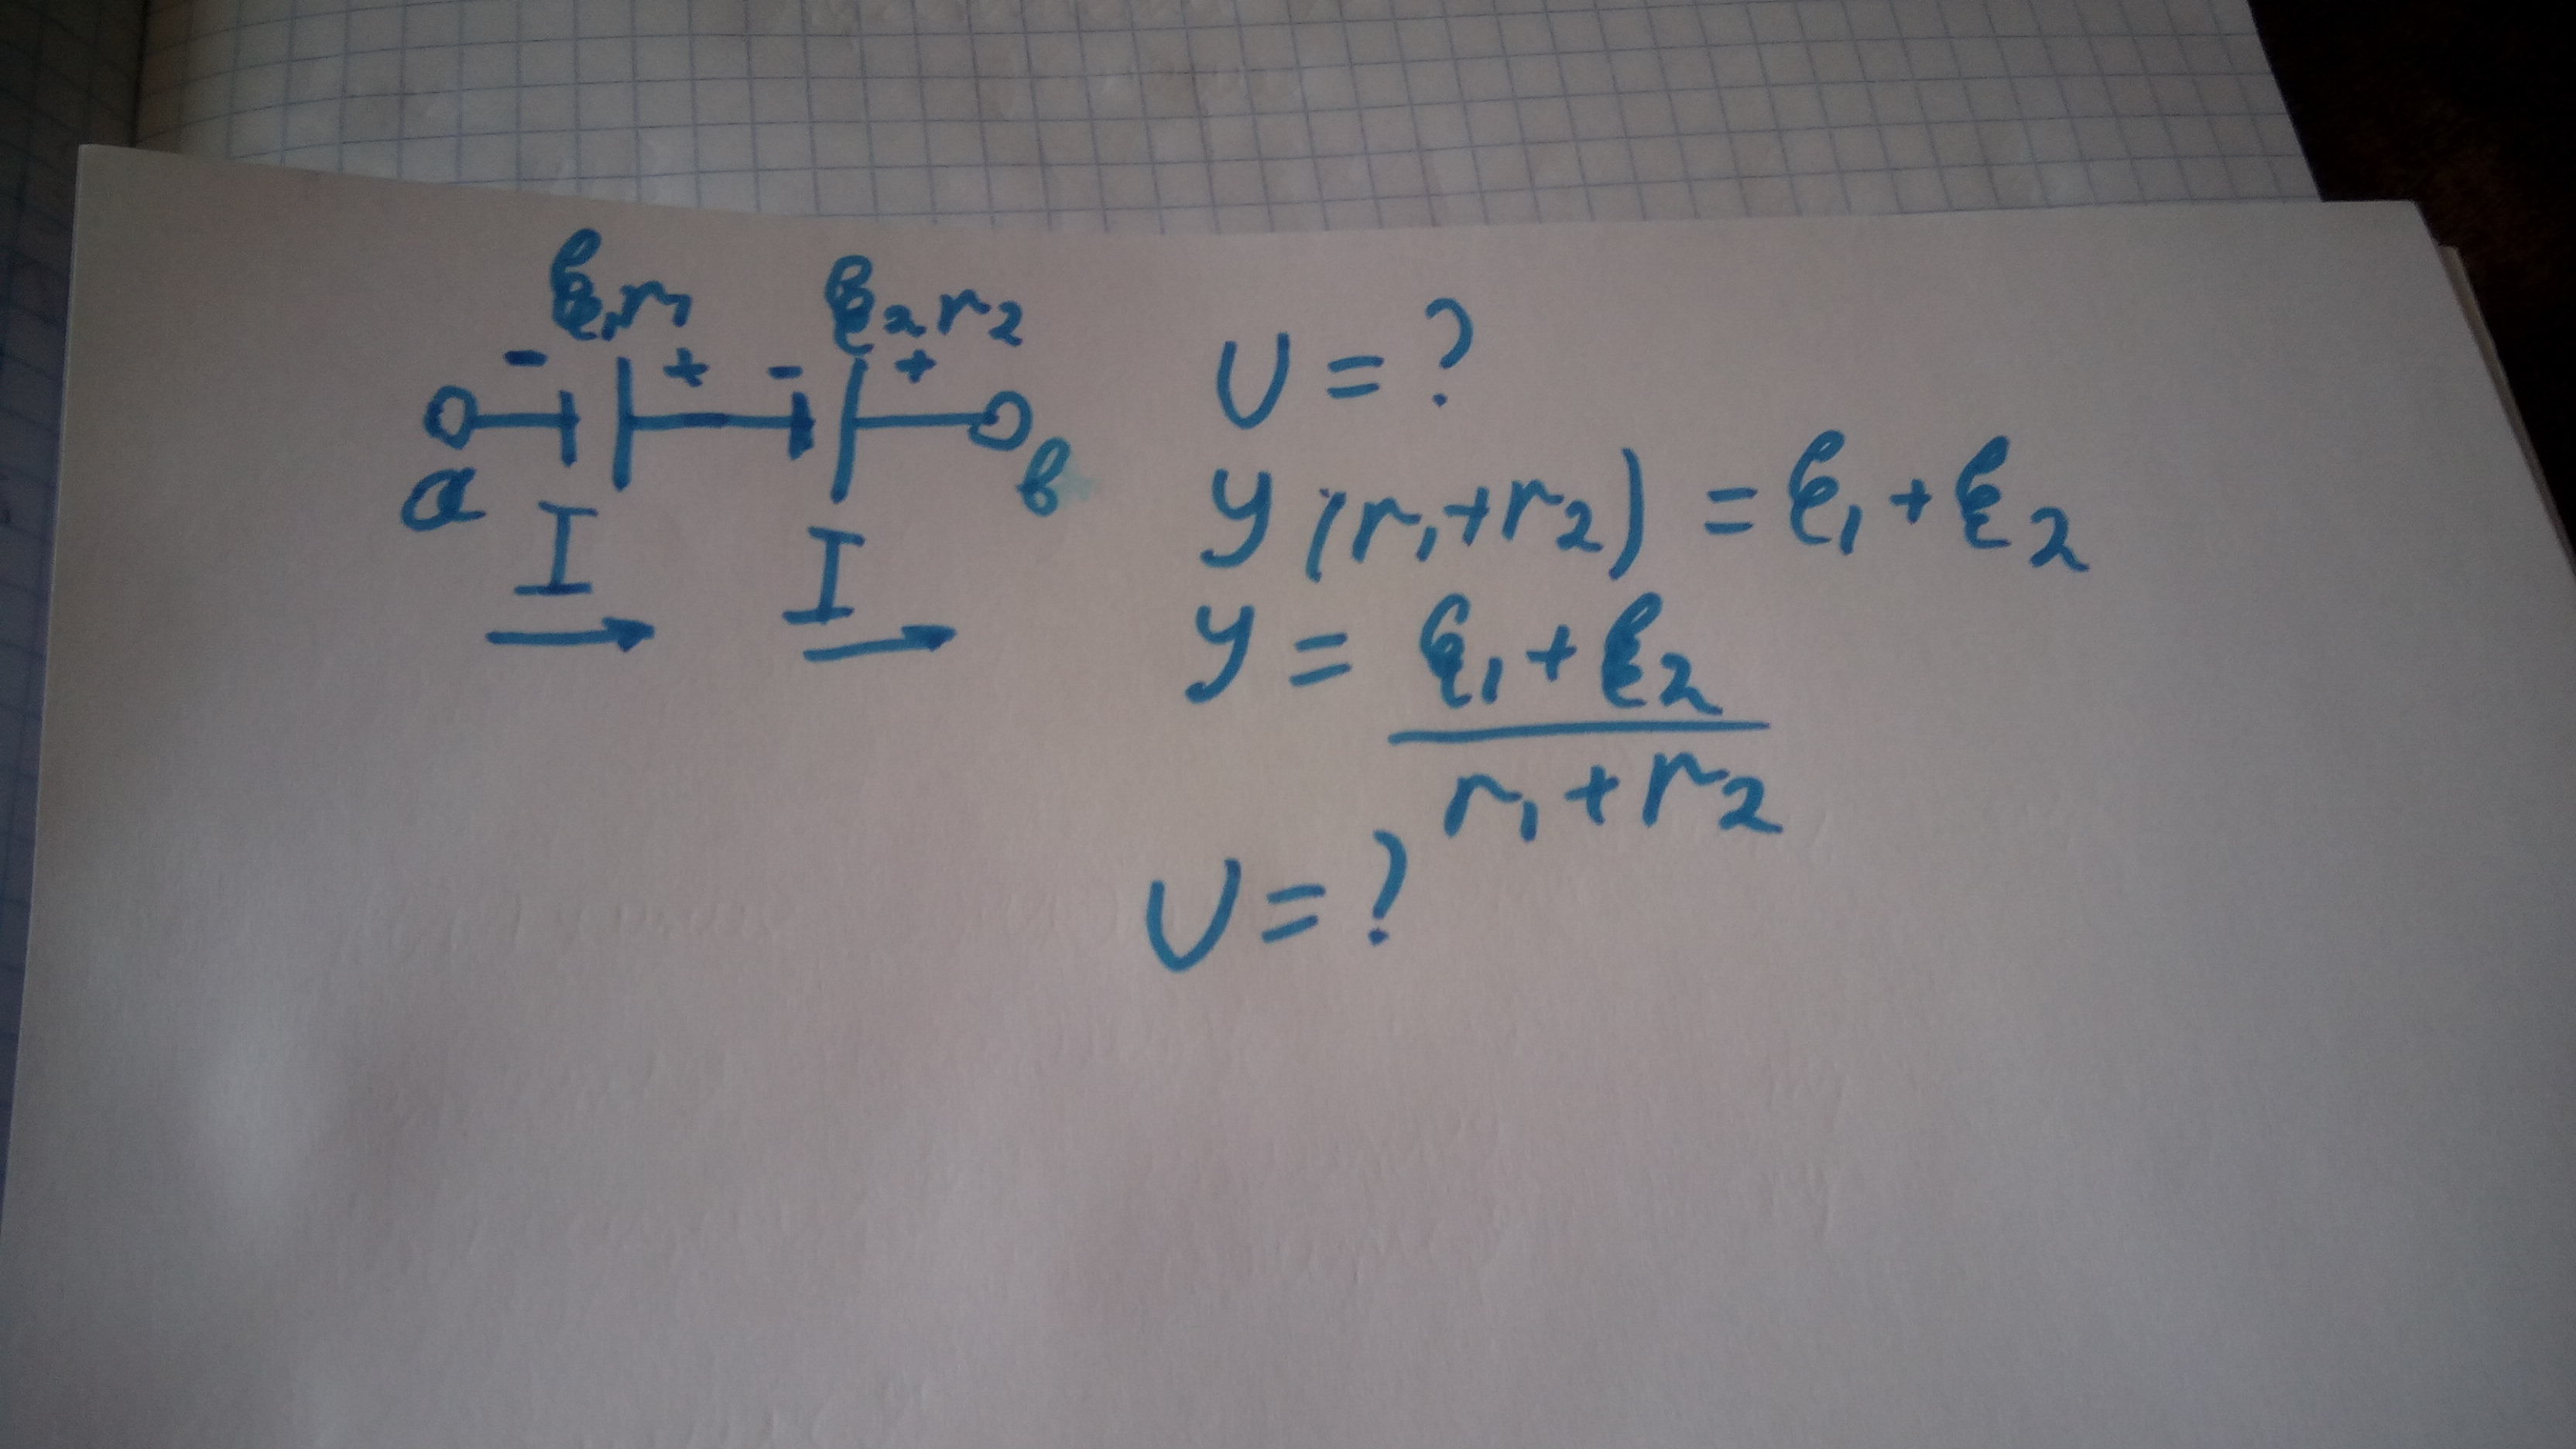 ℰ₁r₁ ℰ₂r₂
- + - +
a в
I I
U = ?
У (r₁+r₂) = ℰ₁ + ℰ₂
У = ℰ₁ + ℰ₂
r₁ + r₂
U = ?